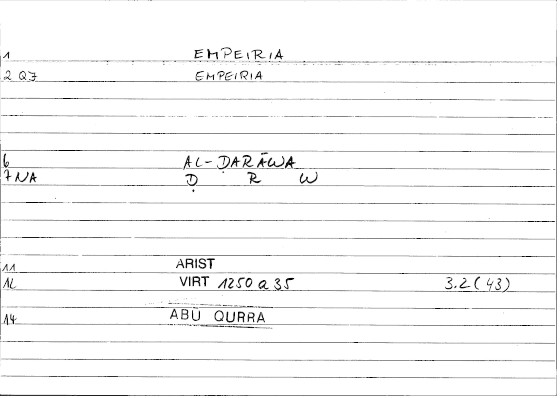 1 EMPEIRIA
2 QJ EMPEIRIA
6 AL-ḌARĀWA
7 NA Ḍ R W
11 ARIST
12 VIRT 1250 a 35 3.2(43)
14 ABŪ QURRA